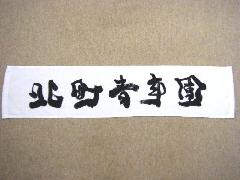 北西青年團